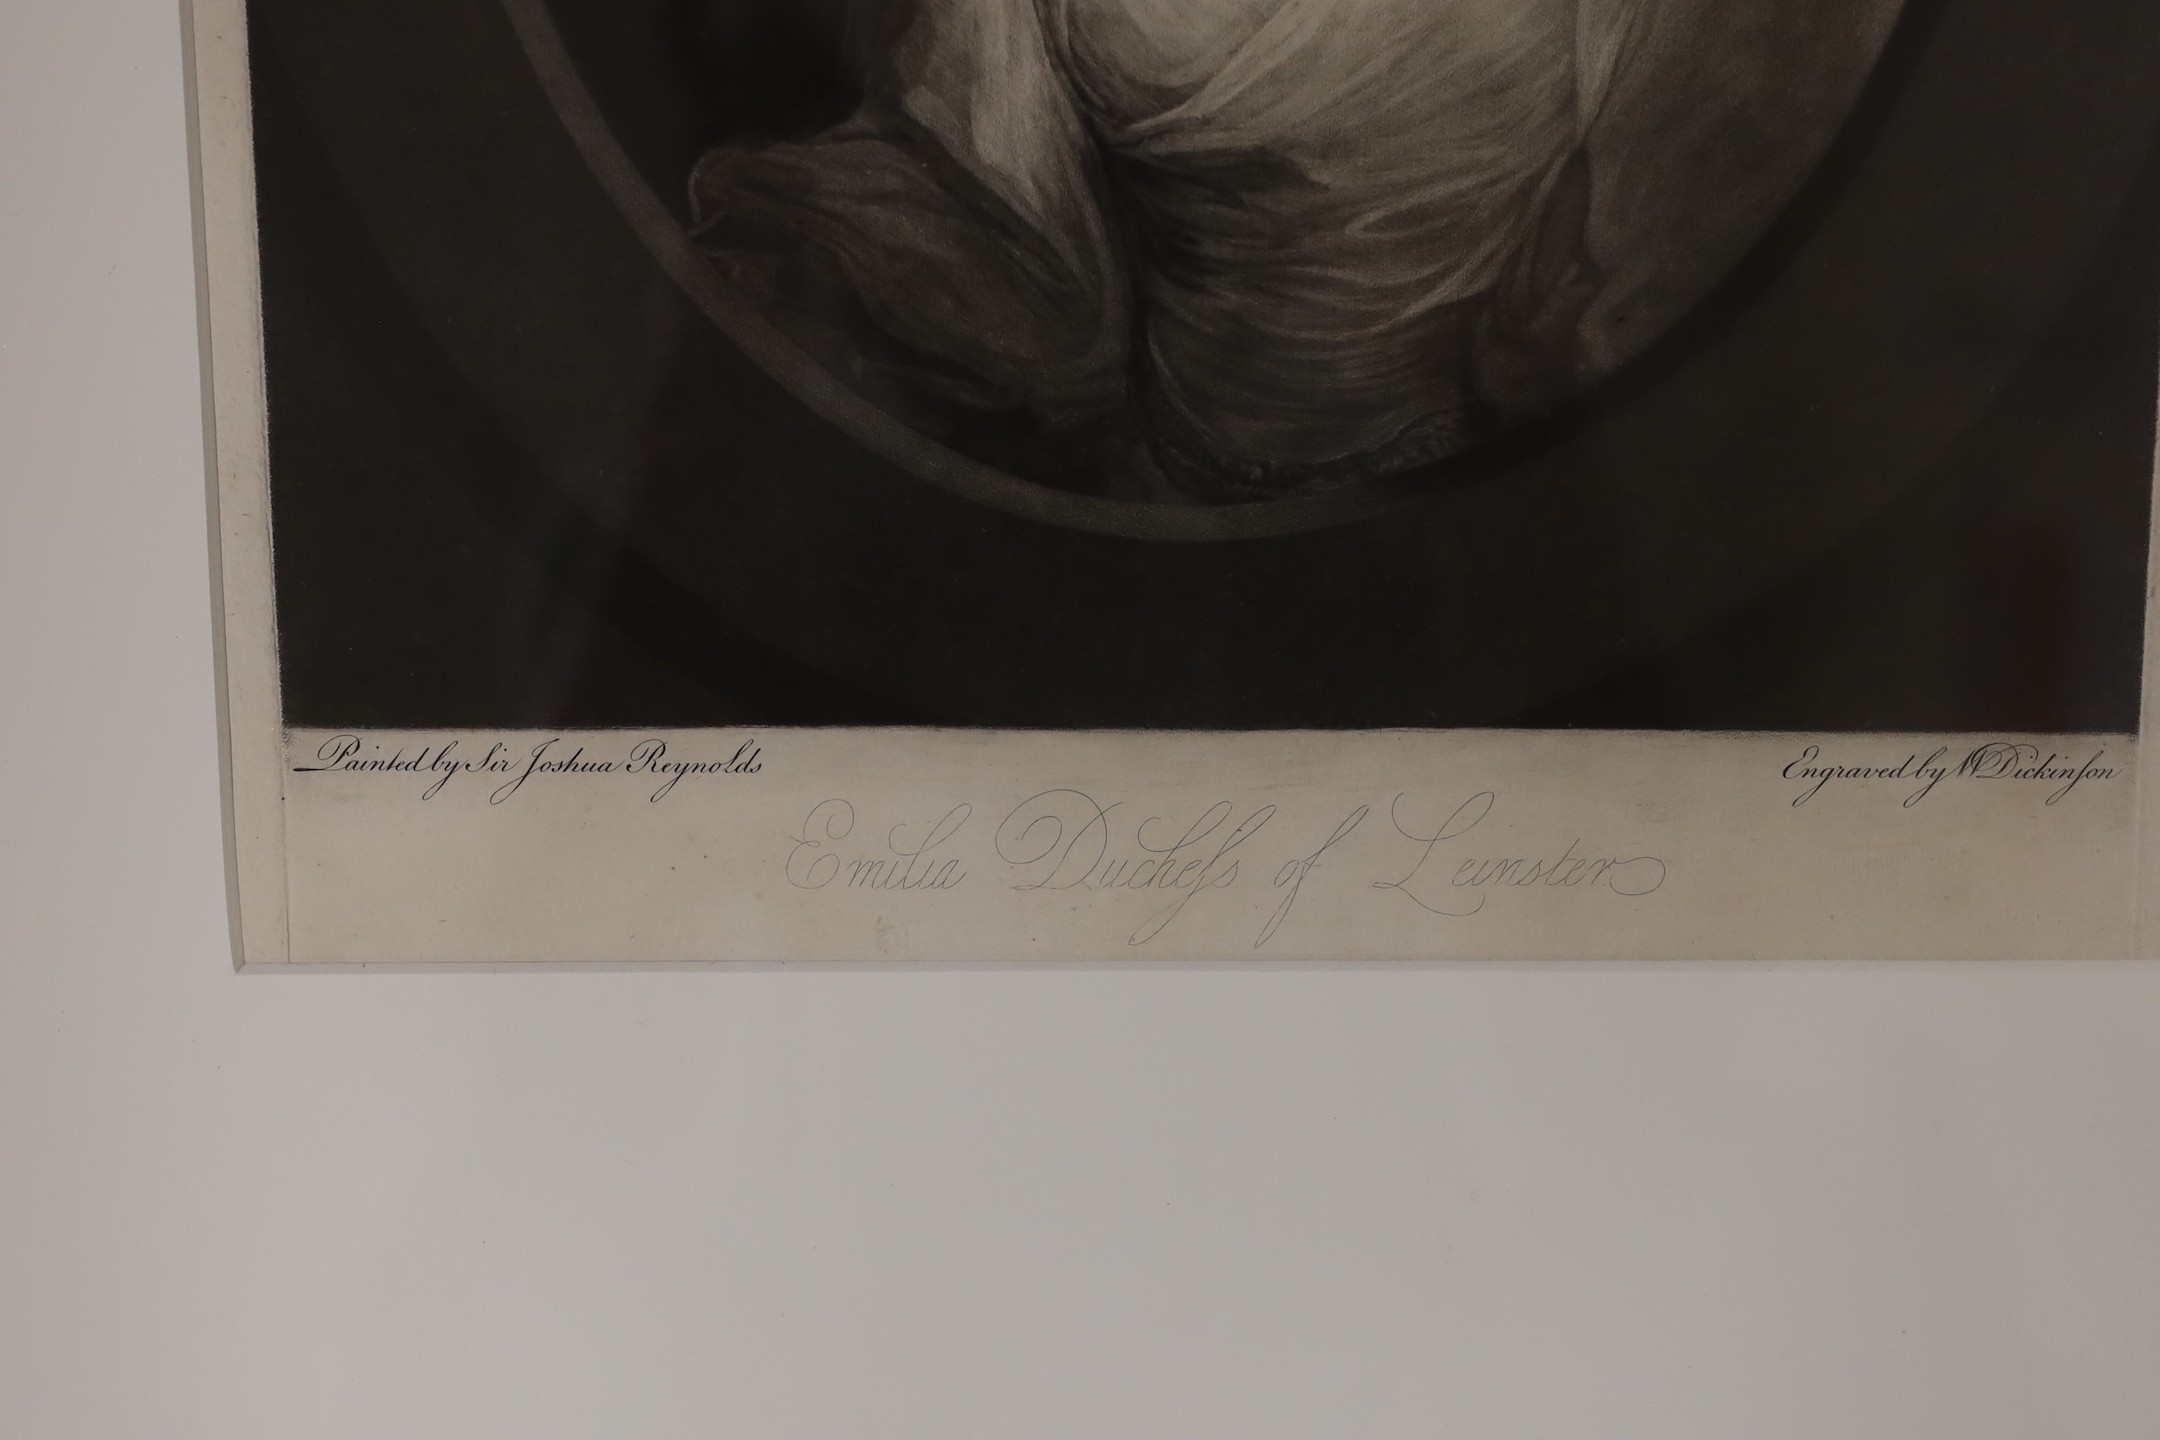 Painted by Sir Joshua Reynolds
Engraved by W Dickinſon
Emilia Ducheſs of Leinster